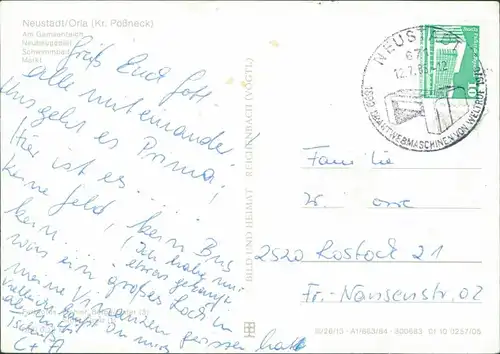 Neustadt/Orla (Kr. Pößneck)
Am Gamsenteich
Neubaugebiet
Schwimmbad
Markt
Grüß Euch Gott
alle miteinander
Uns geht es Prima!
Hier ist es...
keine Feld, kein Bus
kein...
Ich habe mir
etwas gekauft
was ein großes Loch in
meine Finanzen gerissen hat
Tschüß
C + A
BILD UND HEIMAT REICHENBACH (VOGTL)
NEUSTADT
12.7.85-12
WEBMASCHINEN VON WELTRUF
10
Familie
2520 Rostock 21
Fr.-Nansenstr. 02
III/26/15 - A1/663/84 - 300683 01 10 0257/05